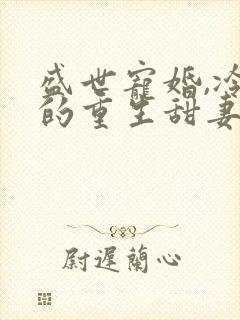 盛世寵婚,冷
的重生甜妻
尉遲蘭心